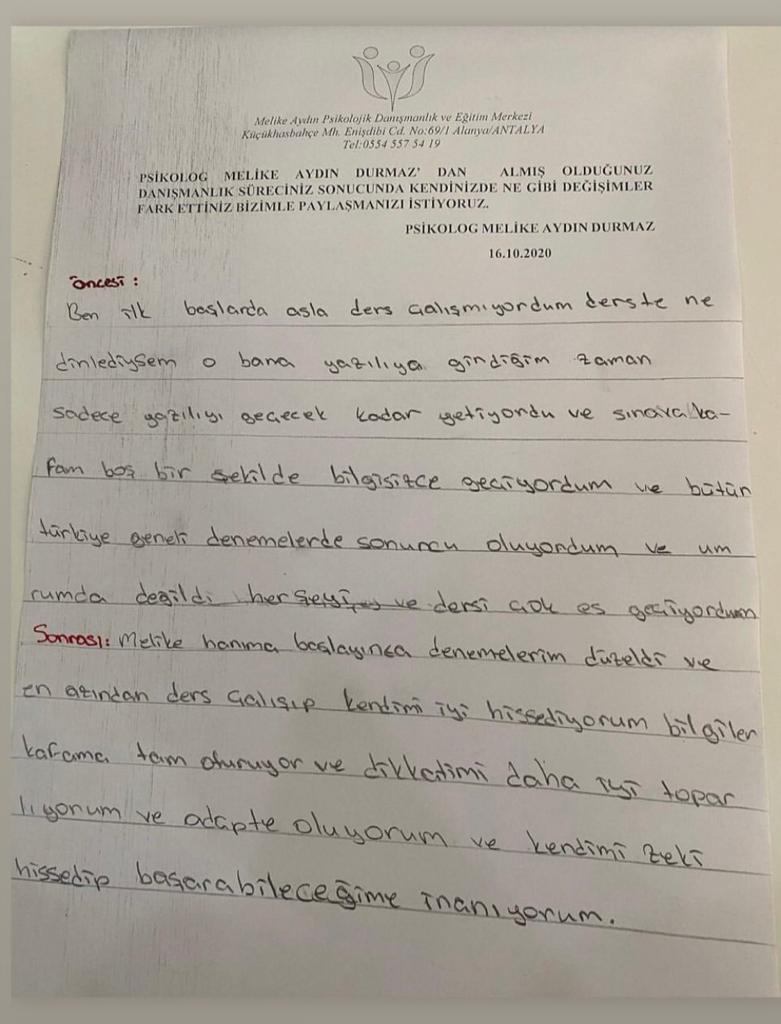 Melike Aydın Psikolojik Danışmanlık ve Eğitim Merkezi
Küçükhasbahçe Mh. Enişdibi Cd. No:69/1 Alanya/ANTALYA
Tel:0554 557 54 19
PSİKOLOG MELİKE AYDIN DURMAZ' DAN ALMIŞ OLDUĞUNUZ
DANIŞMANLIK SÜRECİNİZ SONUCUNDA KENDİNİZDE NE GİBİ DEĞİŞİMLER
FARK ETTİNİZ BİZİMLE PAYLAŞMANIZI İSTİYORUZ.
PSİKOLOG MELİKE AYDIN DURMAZ
16.10.2020
öncesi :
Ben ilk başlarda asla ders çalışmıyordum derste ne
dinlediysem o bana yazılıya girdiğim zaman
sadece yazılıyı geçecek kadar yetiyordu ve sınava ka-
fam boş bir şekilde bilgisizce geçiyordum ve bütün
türkiye geneli denemelerde sonuncu oluyordum ve um
rumda değildi her şeyi ve dersi çok es geçiyordum
Sonrası: Melike hanıma başlayınca denemelerim düzeldi ve
en azından ders çalışıp kendimi iyi hissediyorum bilgiler
kafama tam oturuyor ve dikkatimi daha iyi topar
lıyorum ve adapte oluyorum ve kendimi zeki
hissedip başarabileceğime inanıyorum.